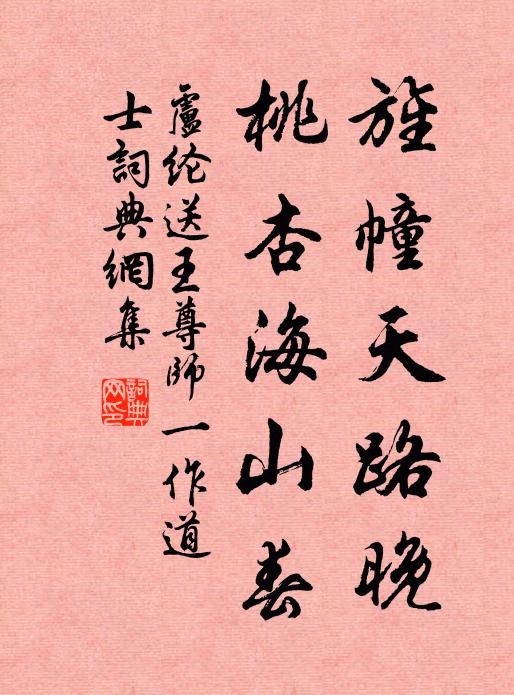 旌幢天路晚
桃杏海山春
盧纶送王尊師一作道
士詞典網集
詞典网印